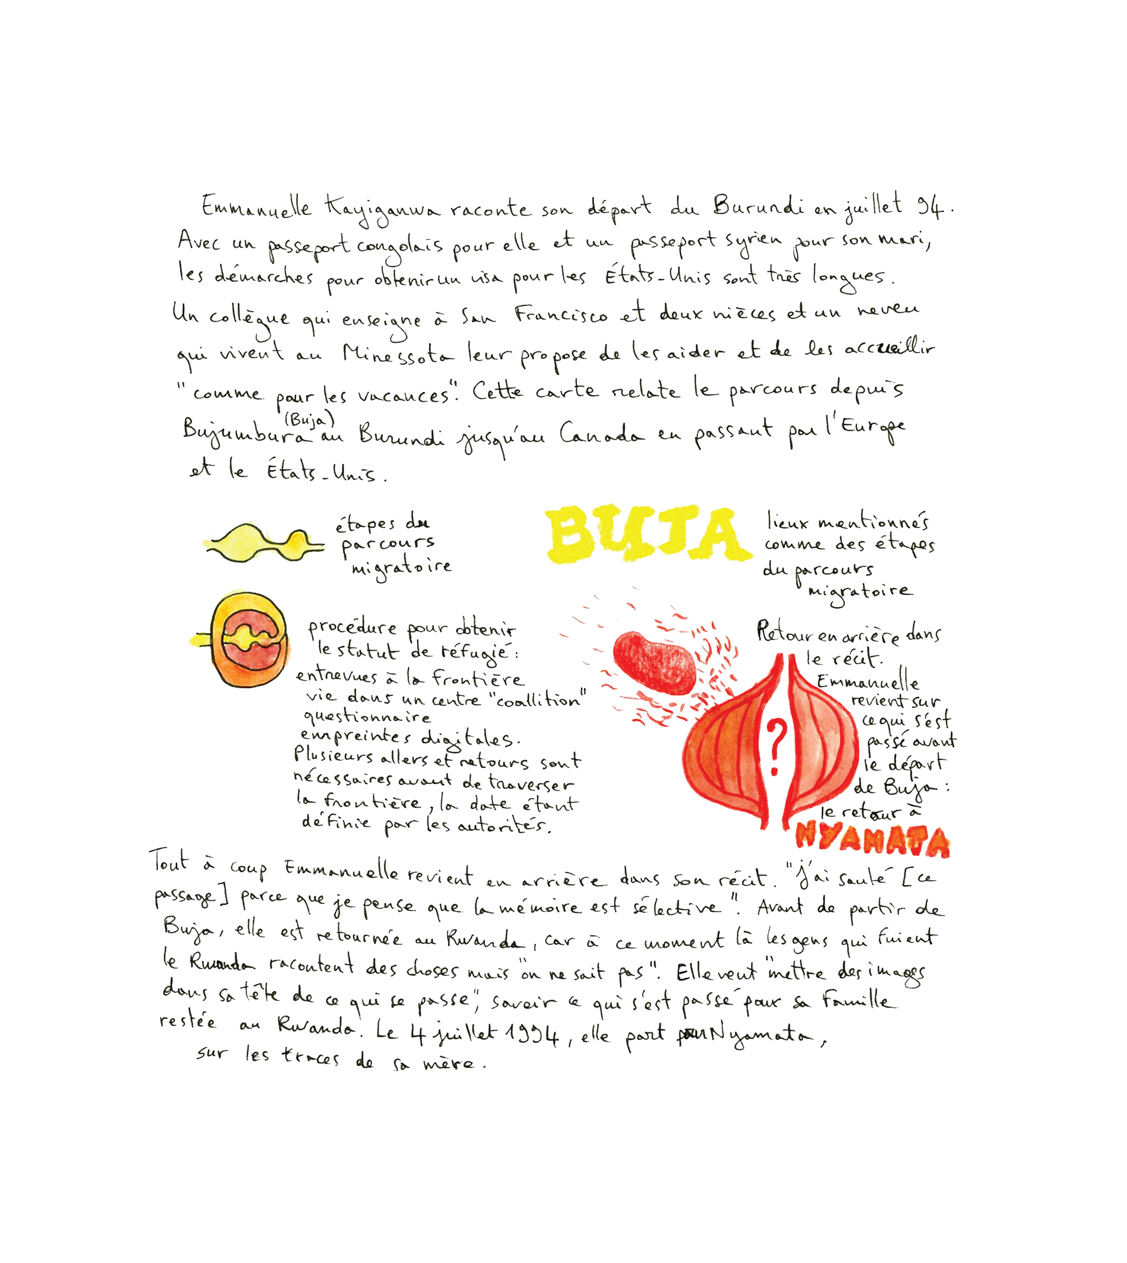 Emmanuelle Kayiganwa raconte son départ du Burundi en juillet 94.
Avec un passeport congolais pour elle et un passeport syrien pour son mari,
les démarches pour obtenir un visa pour les États-Unis sont très longues.
Un collègue qui enseigne à San Francisco et deux nièces et un neveu
qui vivent au Minessota leur propose de les aider et de les accueillir
"comme pour les vacances". Cette carte relate le parcours depuis
(Buja)
Bujumbura au Burundi jusqu'au Canada en passant par l'Europe
et le États-Unis.
étapes du
parcours
migratoire
BUJA
lieux mentionnés
comme des étapes
du parcours
migratoire
procédure pour obtenir
le statut de réfugié :
entrevues à la frontière
vie dans un centre "coallition"
questionnaire
empreintes digitales.
Plusieurs allers et retours sont
nécessaires avant de traverser
la frontière, la date étant
définie par les autorités.
Retour en arrière dans
le récit.
Emmanuelle
revient sur
ce qui s'est
passé avant
le départ
de Buja :
le retour à
NYAMATA
?
Tout à coup Emmanuelle revient en arrière dans son récit. "J'ai sauté [ce
passage] parce que je pense que la mémoire est sélective". Avant de partir de
Buja, elle est retournée au Rwanda, car à ce moment là les gens qui fuient
le Rwanda racontent des choses mais "on ne sait pas". Elle veut "mettre des images
dans sa tête de ce qui se passe", savoir ce qui s'est passé pour sa famille
restée au Rwanda. Le 4 juillet 1994, elle part pour Nyamata,
sur les traces de sa mère.